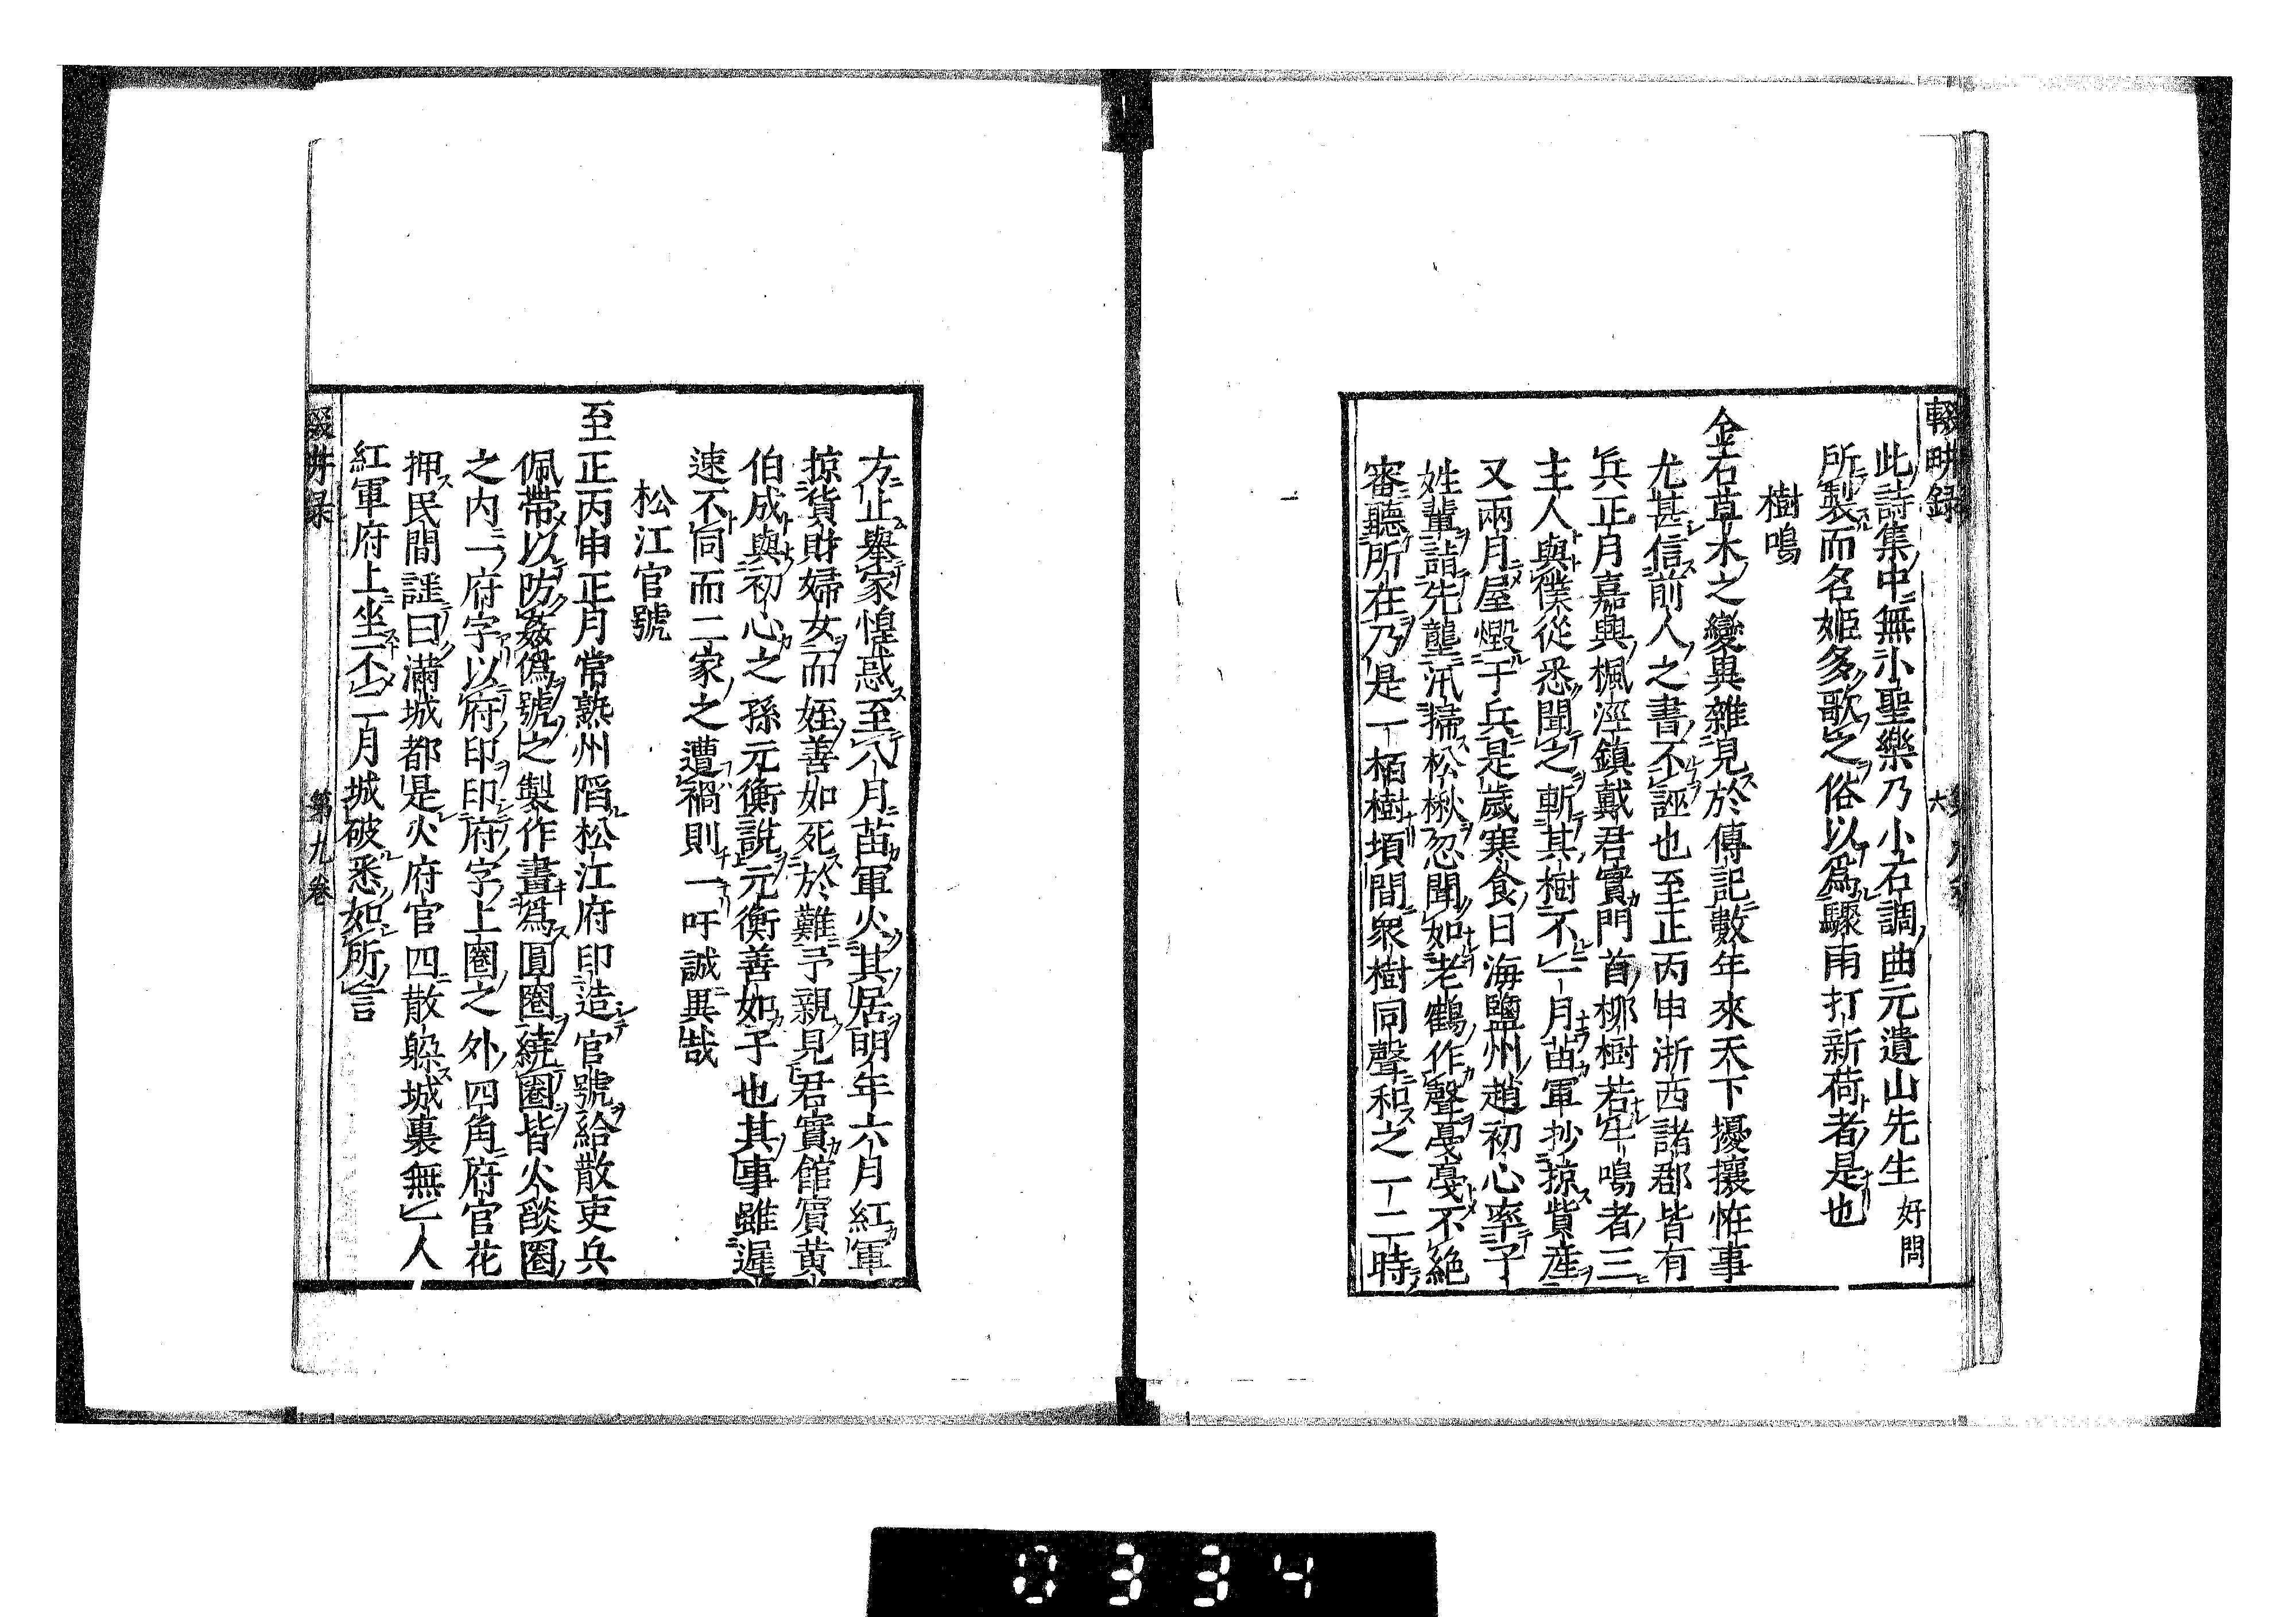 輟畊録
六
此詩集中無小聖樂乃小石調曲元遺山先生好問
所製而名姬多歌之俗以爲驟雨打新荷者是也
樹鳴
金石草木之變異雜見於傳記數年來天下擾攘恠事
尤甚信前人之書不誣也至正丙申浙西諸郡皆有
兵正月嘉興楓涇鎮戴君實門首栁樹若牛鳴者三
主人與僕從悉聞之斬其樹不一月苗軍抄掠貲産
又兩月屋燬于兵是歲寒食日海鹽州趙初心率子
姓輩詣先壟汛掃松楸忽聞如老鶴作聲戞戞不絶
審聽所在乃是一栢樹頃間衆樹同聲和之一二時
方止舉家惶惑至八月苗軍火其居明年六月紅軍
掠貨財婦女而姪善如死於難予親見君實館賓黄
伯成與初心之孫元衡說元衡善如子也其事雖遲
速不同而二家之遭禍則一吁誠異哉
松江官號
至正丙申正月常熟州䧟松江府印造官號給散吏兵
佩帶以防姦僞號之製作畫爲圓圈繞圈皆火燄圈
之内一府字以府印印府字上圈之外四角府官花
押民間謡曰滿城都是火府官四散躱城裏無一人
紅軍府上坐不二月城破悉如所言
輟畊録
第九卷
0334